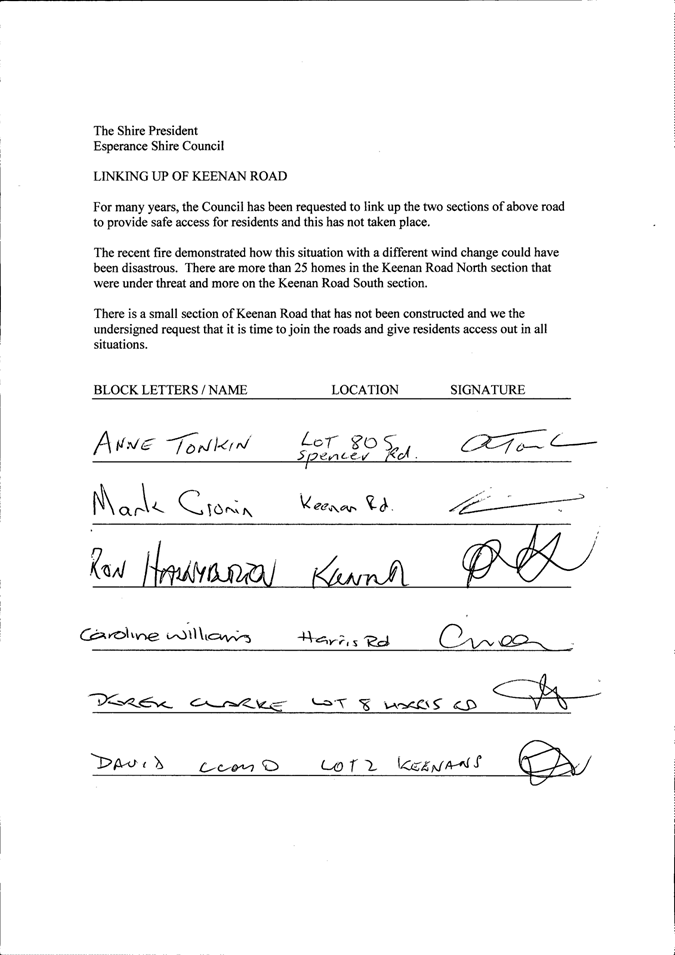 The Shire President
Esperance Shire Council
LINKING UP OF KEENAN ROAD
For many years, the Council has been requested to link up the two sections of above road
to provide safe access for residents and this has not taken place.
The recent fire demonstrated how this situation with a different wind change could have
been disastrous. There are more than 25 homes in the Keenan Road North section that
were under threat and more on the Keenan Road South section.
There is a small section of Keenan Road that has not been constructed and we the
undersigned request that it is time to join the roads and give residents access out in all
situations.
BLOCK LETTERS / NAME LOCATION SIGNATURE
ANNE TONKIN LOT 805
Spencer Rd.
Mark Cronin Keenan Rd.
RON
Caroline Williams Harris Rd
DEREK CLARKE LOT 8 HARRIS RD
DAVID LOT 2 KEENANS